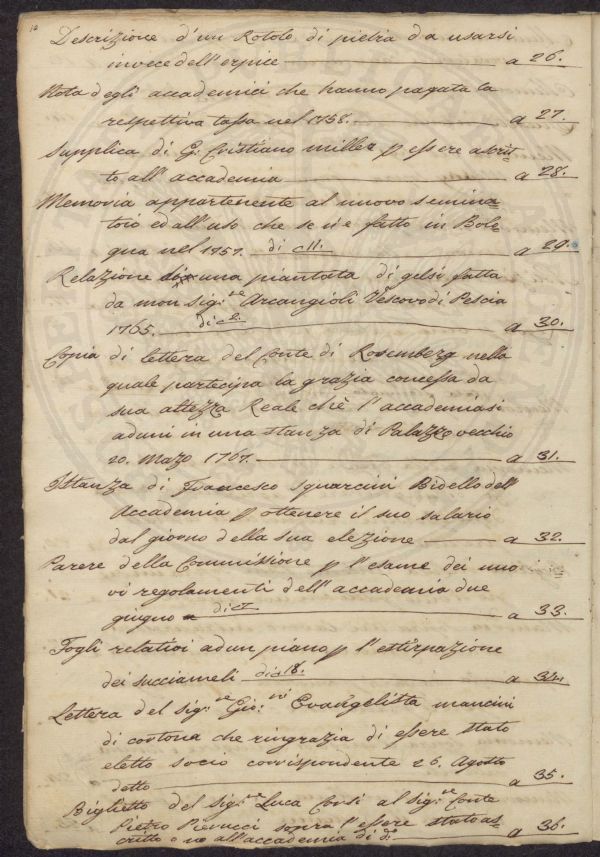 Descrizione d'un Rotolo di pietra da usarsi
invece dell'erpice a 26.
Nota degli accademici che hanno pagata la
respettiva tassa nel 1758. a 27.
Supplica di G. Cristiano miller p essere ascrit
to all'accademia a 28.
Memoria appartenente al nuovo semina
toio ed all'uso che se n'è fatto in Bolo
gna nel 1759. di c 11. a 29.
Relazione una piantata di gelsi fatta
da mon sig.re Arcangioli Vescovo di Pescia
1765. di c 2. a 30.
Copia di lettera del Conte di Rosemberg nella
quale partecipa la grazia concessa da
sua altezza Reale chè l'accademia si
aduni in una stanza di Palazzo vecchio
20. Marzo 1767. a 31.
Istanza di Francesco Squarcini Bidello dell
Accademia p ottenere il suo salario
dal giorno della sua elezione a 32.
Parere della Commissione p l'esame dei nuo
vi regolamenti dell'accademia due
giugno a 33.
Fogli relativi ad un piano p l'estirpazione
dei succiameli di c 18. a 34.
Lettera del sig.re Gio: Evangelista mancini
di cortona che ringrazia di essere stato
eletto socio corrispondente 26. Agosto
detto a 35.
Biglietto del sig.re Luca Corsi al sig.re Conte
Pietro Pierucci sopra l'essere stato as
critto o no all'accademia di d.o a 36.